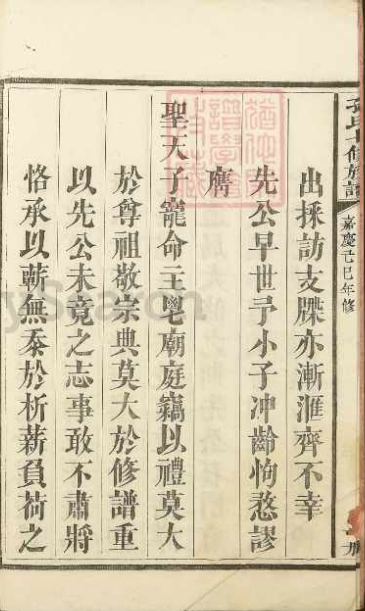 孫氏十修族譜
嘉慶己巳年修
出採訪支牒亦漸滙齊不幸
先公早世予小子冲齡恂愗謬
膺
聖天子寵命主鬯廟庭竊以禮莫大
於尊祖敬宗典莫大於修譜重
以先公未竟之志事敢不肅將
恪承以蘄無忝於析薪負荷之